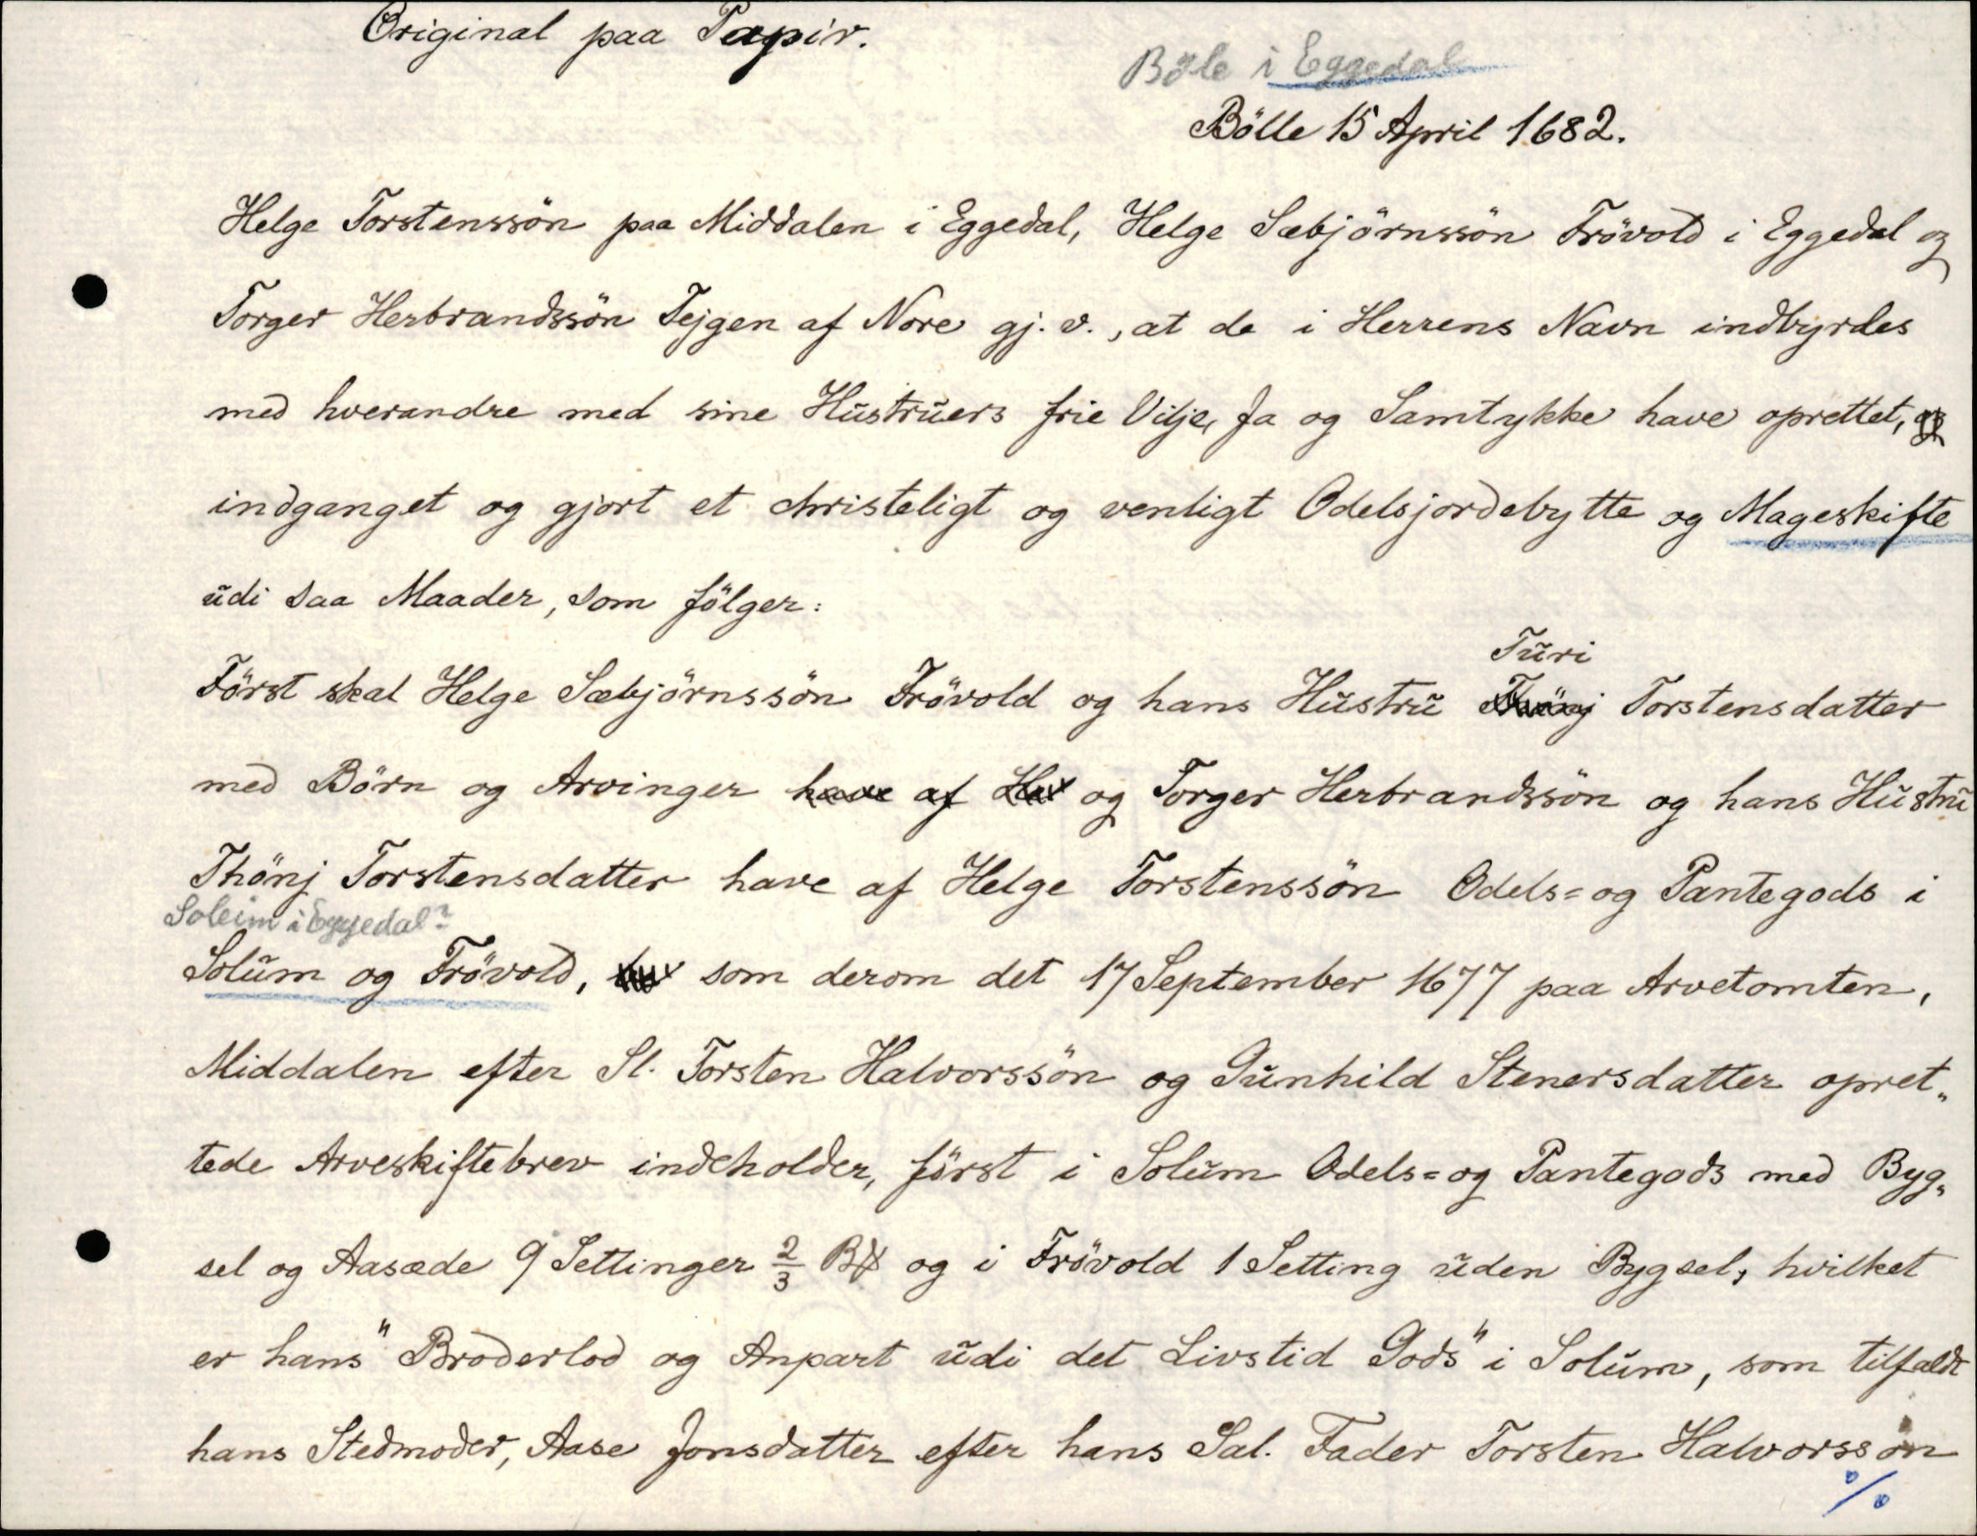 Original paa Papir.
Böle i Eggedal
Bölle 15 April 1682.
Helge Torstenssön paa Middalen i Eggedal, Helge Sæbjörnssön Frövold i Eggedal og
Torger Herbrandssön Tejgen af Nore gj. v., at de i Herrens Navn indbyrdes
med hverandre med sine Hustruers frie Vilje, Ja og Samtykke have oprettet,
indganget og gjort et christeligt og venligt Odelsjordebytte og Mageskifte
udi saa Maader, som fölger:
Turi
Först skal Helge Sæbjörnssön Frövold og hans Hustru Torstensdatter
med Börn og Arvinger have af og Torger Herbrandssön og hans Hustru
Thönj Torstensdatter have af Helge Torstenssön Odels= og Pantegods i
Soleim i Eggedal?
Solum og Frövold, som derom det 17 September 1677 paa Arvetomten,
Middalen efter Sl. Torsten Halvorssön og Gunhild Stenersdatter opret„
tede Arveskiftebrev indeholder, först i Solum Odels= og Pantegods med Byg„
sel og Aasæde 9 Settinger 2/3 og i Frövold 1 Setting uden Bygsel, hvilket
er hans "Broderlod og Anpart udi det Livstid Gods" i Solum, som tilfaldt
hans Stedmoder, Aase Jonsdatter efter hans Sal. Fader Torsten Halvorsson
%